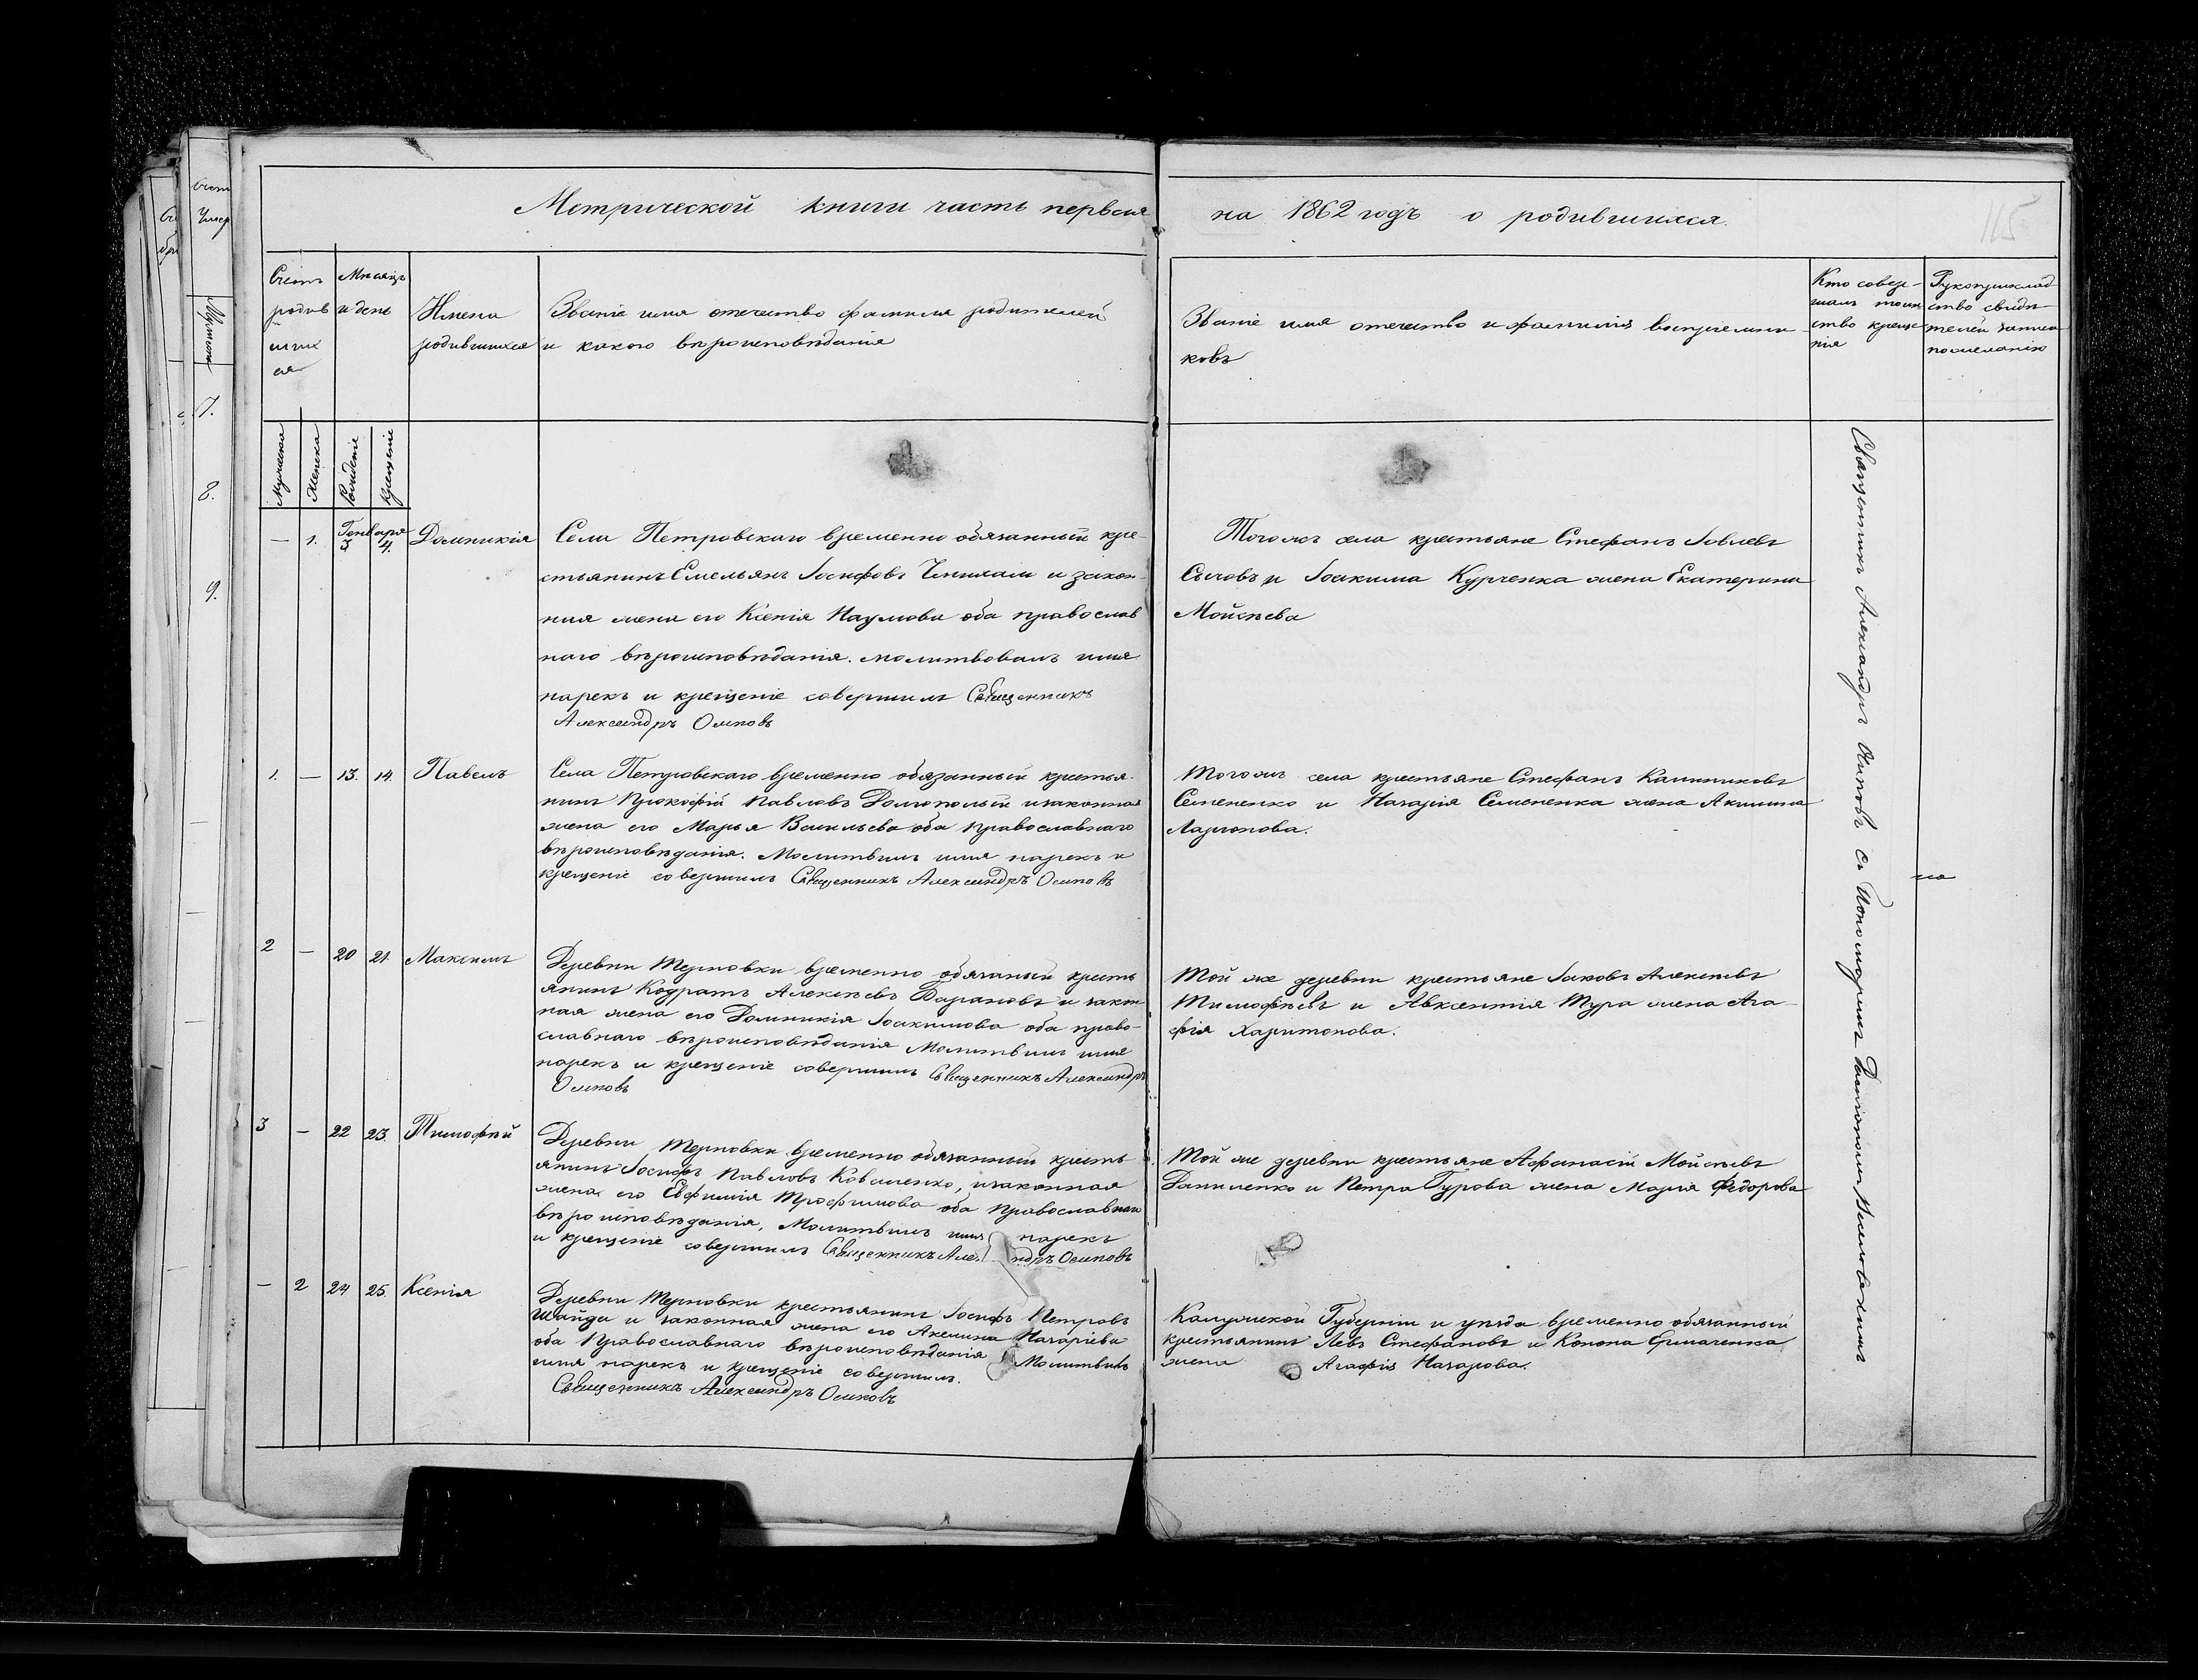 Метрической книги часть первая на 1862 годъ о родившихся.
115
Счетъ родившихся
Мѣсяцъ и день
Имена родившихся
Званіе имя отечество фамилія родителей
и какого вѣроисповѣданія
Званіе имя отечество и фамилія воспріемни-
ковъ
Кто совер-
шалъ таин
ство креще
нія
Рукоприклад
ство свидѣ-
телей записи
по желанію
Мужеска
Женска
Рожденіе
Крещеніе
Генваря
— 1. 3 4. Домникія
Села Петровскаго временно обязанный кре-
стьянинъ Емельянъ Іосифовъ и закон-
ная жена его Ксенія Наумова оба православ
наго вѣроисповѣданія. молитвовалъ имя
нарекъ и крещеніе совершилъ Священникъ
Александръ Осиповъ
Тогожъ села крестьяне Стефанъ Іовлевъ
Сычовъ и Іоакима Курченка жена Екатерина
Мойсѣева
1. — 13. 14. Павелъ
Села Петровскаго временно обязанный крестья-
нинъ Прокофій Павловъ Долгополый и законная
жена его Марья Васильева оба православнаго
вѣроисповѣданія. Молитвилъ имя нарекъ и
крещеніе совершилъ Священникъ Александръ Осиповъ
Тогожъ села крестьяне Стефанъ Калинниковъ
Семененко и Назарія Семененка жена Акилина
Ларіонова.
2 — 20 21. Максимъ
Деревни Терновки временно обязаный кресть
янинъ Кодратъ Алексѣевъ Барановъ и закон
ная жена его Домникія Іоакимова оба право-
славнаго вѣроисповѣданія Молитвилъ имя
нарекъ и крещеніе совершилъ Священникъ Александръ
Осиповъ
Той же деревни крестьяне Іаковъ Алексѣевъ
Тимофѣевъ и Авксентія Тура жена Ага-
фія Харитонова.
3 — 22 23. Тимофѣй
Деревни Терновки временно обязанный кресть
янинъ Іосифъ Павловъ Коваленко, и законная
жена его Евфимія Трофимова оба Православнаго
вѣроисповѣданія, Молитвилъ имя нарекъ
и крещеніе совершилъ Священникъ Але ндръ Осиповъ
Той же деревни крестьяне Афанасій Мойсѣевъ
Даниленко и Петра Гурова жена Марія Федорова
— 2 24 25. Ксенія
Деревни Терновки крестьянинъ Іосифъ Петровъ
Шайда и законная жена его Акелина Назаріева
оба Православнаго вѣроисповѣданія Молитвилъ
имя нарекъ и крещеніе совершилъ.
Священникъ Александръ Осиповъ
Калужской Губерніи и уѣзда временно обязанный
крестьянинъ Левъ Стефановъ и Конона Ермаченка
жена Агафія Назарова.
Священникъ Александръ Осиповъ съ Пономаремъ
по
7.
8.
9.